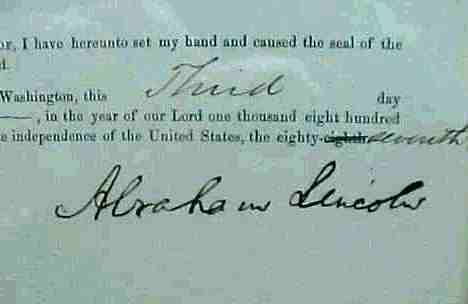 or, I have hereunto set my hand and caused the seal of the
d.
Washington, this Third day
, in the year of our Lord one thousand eight hundred
e independence of the United States, the eighty-eighth seventh
Abraham Lincoln